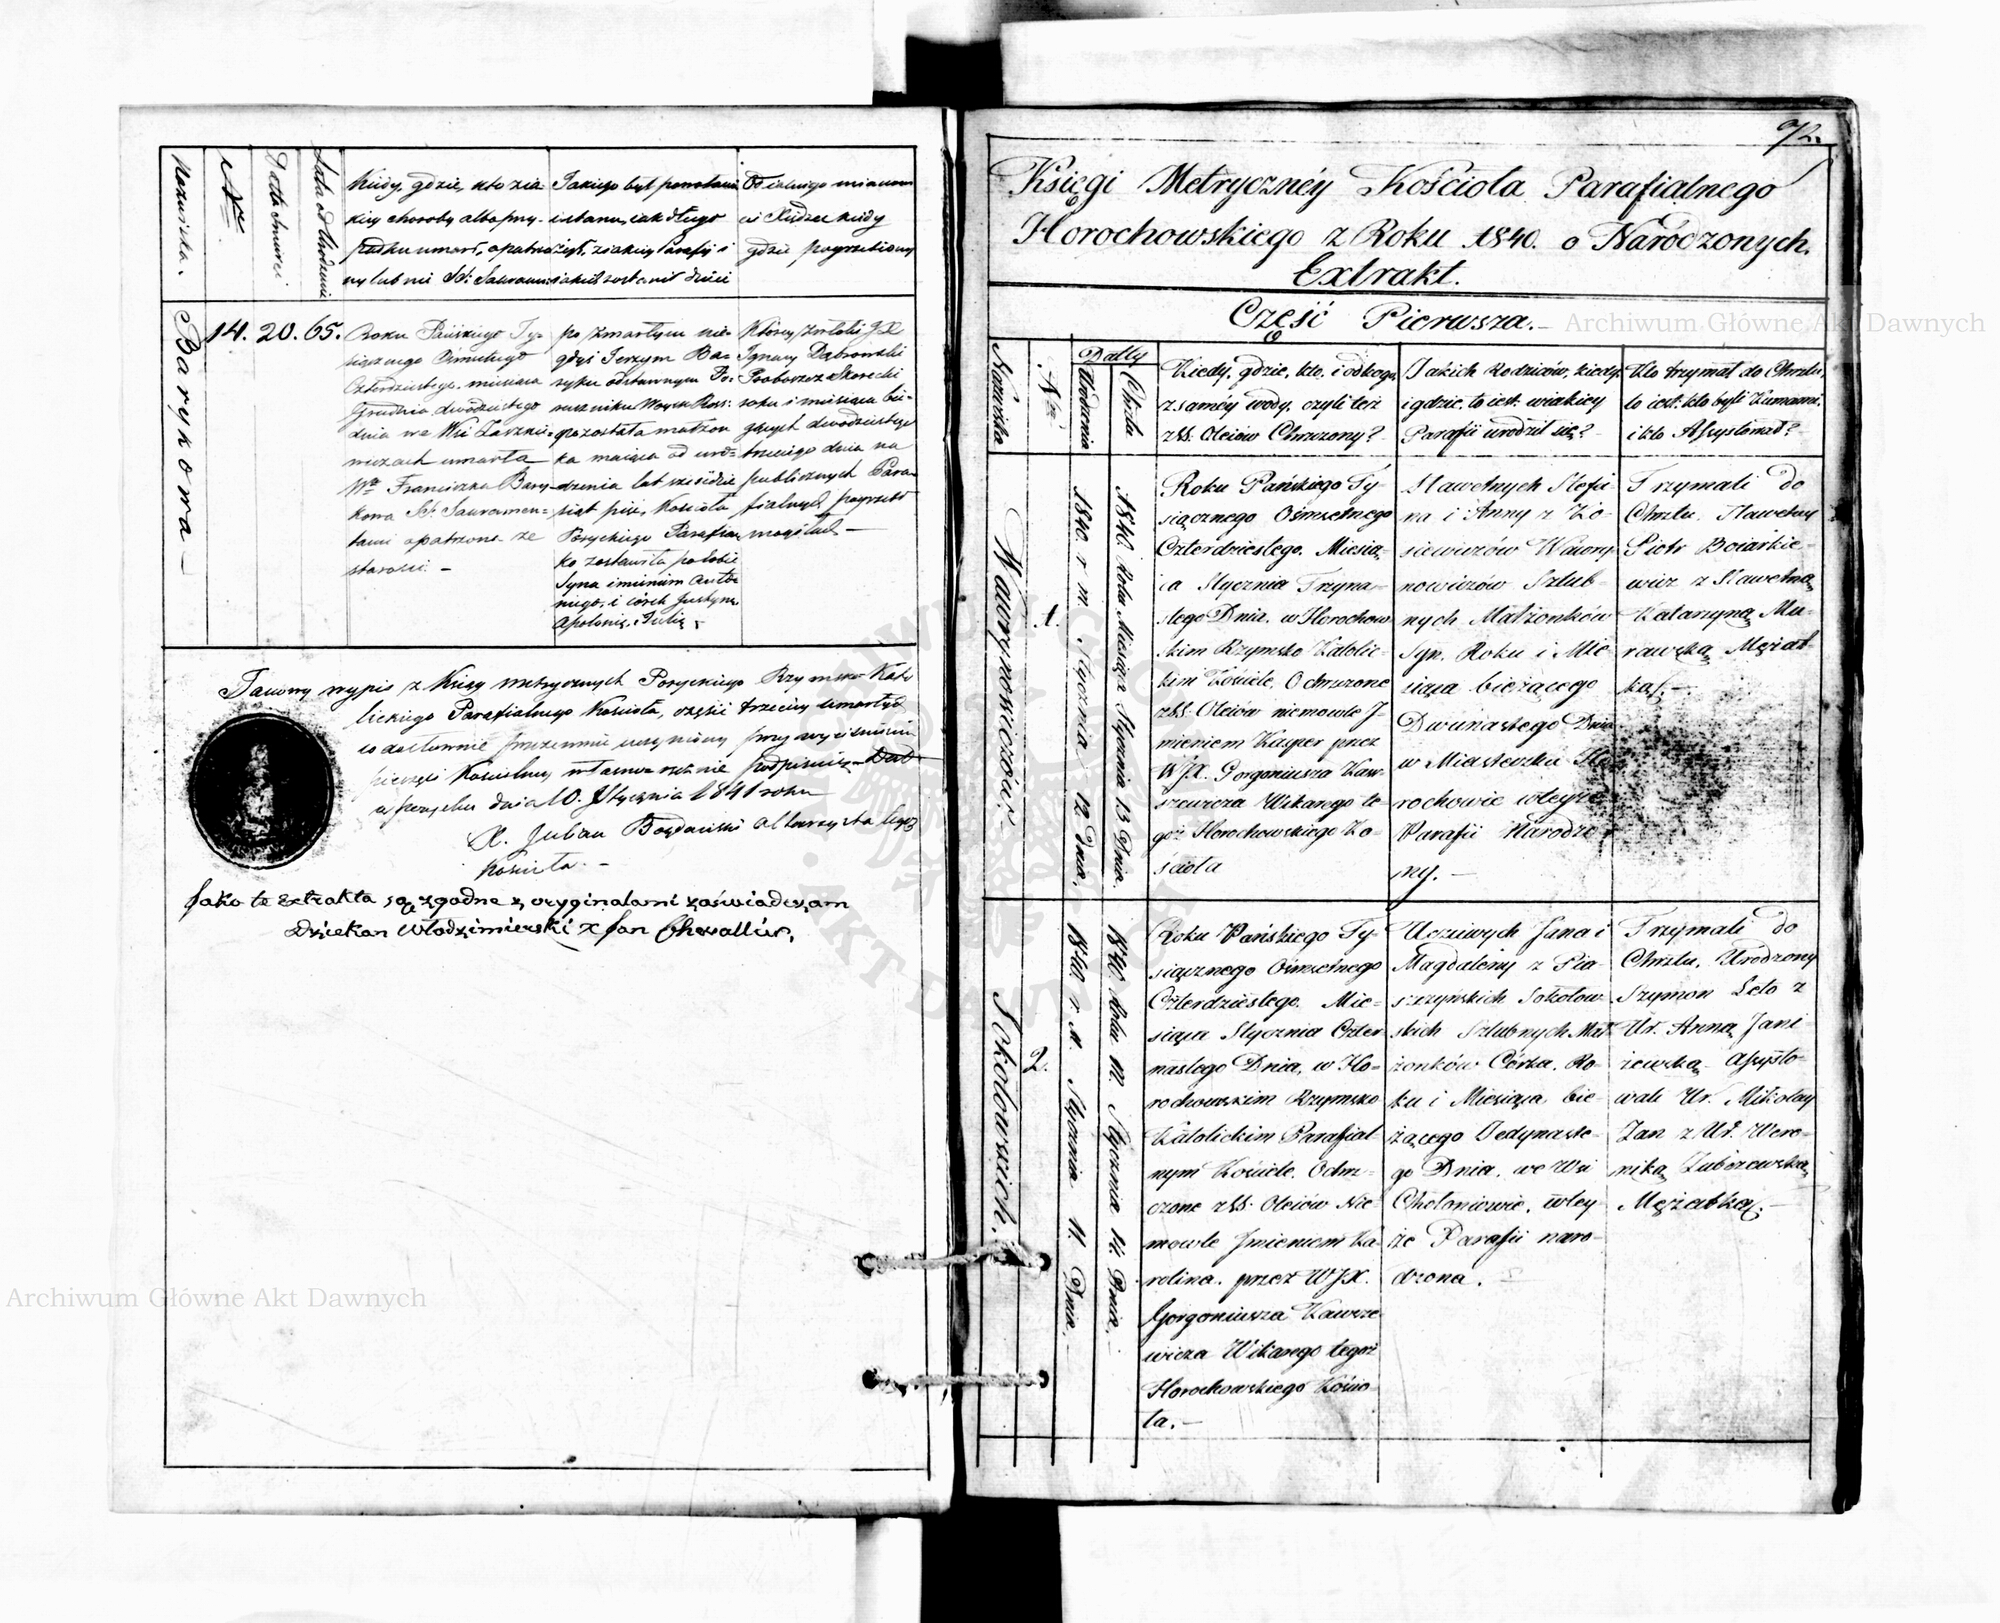 Nazwiska.
Nro
Datta śmierci
Lata od Urodzenia
Kiedy, gdzie, kto z ia-
kiey choroby albo przy-
padku umarł, opatrzo-
ny lub nie SS: Sakramen:
Jakiego był powołania
i stanu, iak długo
żył, z iakiey Parafij i
iakie zostawił dzieci
Od iakiego mianowi-
cie Xiędza kiedy
gdzie pogrzebiony
Barykowa
14. 20. 65.
Roku Pańskiego Ty-
siącznego Ośmsetnego
Czterdziestego, miesiąca
Grudnia dwudziestego
dnia we Wsi
umarła
Wna Franciszka Bary-
kowa SS. Sakramen-
tami opatrzona ze
starości –
po zmarłym nie-
gdyś Jerzym Ba-
ryku odstawnym Po-
ruczniku Woysk Ross:
pozostała małżon
ka maiąca od uro-
dzenia lat sześćdzie
siąt pięć, Kościoła
Poryckiego Parafian
ka zostawiła po sobie
Syna imieniem Anto-
niego, i córek Justynę,
Apolonię, Julię,
Którey zwłoki JX
Ignacy Dąbrowski
Proboszcz Skorecki
roku i miesiąca bie-
żących dwudziestego
trzeciego dnia na
publicznych Para-
fialnych pogrzebł
mogiłach –
Takowy wypis z Xiąg metrycznych Poryckiego Rzymsko-Kato
lickiego Parafialnego Kościoła, części trzeciey umarłych
co dosłownie przezemnie uczyniony przy wyciśnieniu
pieczęci Kościelney własno ręcznie podpisuię – Dat
w Porycku dnia 10. Stycznia 1841 roku
X. Julian altarzysta tegoż
Kościoła. –
Jako te extrakta są zgodne z oryginałami zaświadczam
Dziekan Włodzimierski X Jan
92.
Księgi Metrycznéy Kościoła Parafialnego
Horochowskiego z Roku 1840. o Narodzonych.
Extrakt.
Część Pierwsza. –
Nazwiska
Nro
Datty
Urodzenia
Chrztu
Kiedy, gdzie, kto, i od kogo
z saméy wody, czyli też
z SS. Oleiów Chrzczony?
Jakich Rodziców, kiedy
i gdzie, to iest: w iakiey
Parafii urodził się?
Kto trzymał do Chrztu,
to iest: kto byli Kumami,
i kto Assystował?
Wawrynowiczów
1.
1840. r. m. Stycznia 12 Dnia.
1840. Roku Miesiąca Stycznia 13 Dnia.
Roku Pańskiego Ty-
siącznego Ośmsetnego
Czterdziestego. Miesią-
ca Stycznia Trzyna-
stego Dnia, w Horochow-
skim Rzymsko Katolic-
kim Kościele, Ochrzczone
z SS. Oleiów niemowle J-
mieniem Kasper przez
WJX. Gorgoniusza Kaw-
szewicza Wikarego te
goż Horochowskiego Ko-
ścioła
Sławetnych Stefa-
na i Anny z Ko-
siewiczów Wawry-
nowiczów Szlub-
nych Małżonków
Syn. Roku i Mie
siąca bieżącego
Dwunastego Dnia
w Miasteczku Ho-
rochowie wteyże
Parafii Narodzo
ny. –
Trzymali do
Chrztu. Sławetny
Piotr Boiarkie-
wicz z Sławetną
Katarzyną Mu-
rawską Mężat-
ką. –
Sokołowskich.
2.
1840. r. M. Stycznia 11. Dnia.
1840. Roku M. Stycznia 14. Dnia. –
Roku Pańskiego Ty-
siącznego Ośmsetnego
Czterdziestego. Mie-
siąca Stycznia Czter
nastego Dnia, w Ho-
rochowskim Rzymsko
Katolickim Parafial-
nym Kościele. Ochrz-
czone z SS. Oleiów Nie-
mowle Jmieniem Ka-
rolina. przez WJX.
Gorgoniusza Kawsze-
wicza Wikarego tegoż
Horochowskiego Kościo-
ła. –
Uczciwych Jana i
Magdaleny z Pia-
szczyńskich Sokołow-
skich Szlubnych Mał-
żonków Córka. Ro-
ku i Miesiąca bie-
żącego Jedynaste-
go Dnia, we Wsi
Chołoniowie, wtey
że Parafii naro-
dzona.
Trzymali do
Chrztu. Urodzony
Szymon Leto z
Ur. Anną Jani-
żewską. Assysto-
wali Ur. Mikołay
Zan z Ur. Wero-
niką Zuborewską
Mężatką. –
Archiwum Główne Akt Dawnych
Archiwum Główne Akt Dawnych